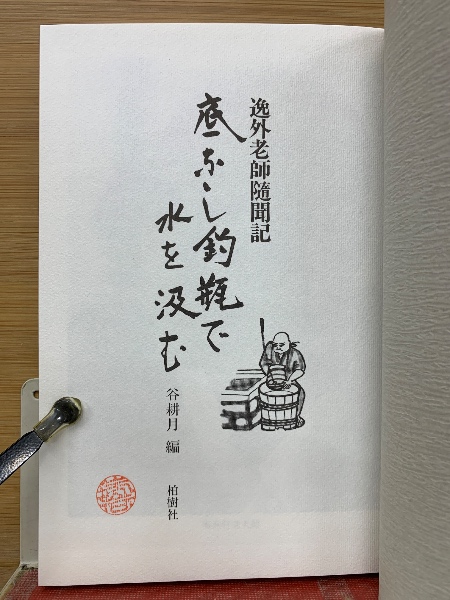 逸外老師隨聞記
底なし釣瓶で
水を汲む
谷耕月 編
柏樹社